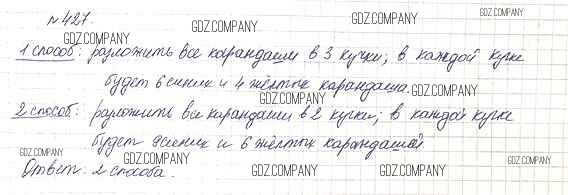 № 427.
GDZ.COMPANY GDZ.COMPANY GDZ.COMPANY
GDZ.COMPANY
1 способ: разложить все карандаши в 3 кучки; в каждой кучке
будет 6 синих и 4 жёлтых карандаша. GDZ.COMPANY
GDZ.COMPANY
2 способ: разложить все карандаши в 2 кучки; в каждой кучке
будет 9 синих и 6 жёлтых карандашей
GDZ.COMPANY GDZ.COMPANY GDZ.COMPANY
Ответ: 2 способа. GDZ.COMPANY GDZ.COMPANY